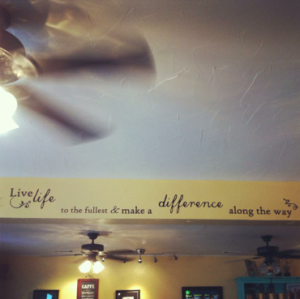 Live life to the fullest & make a difference along the way